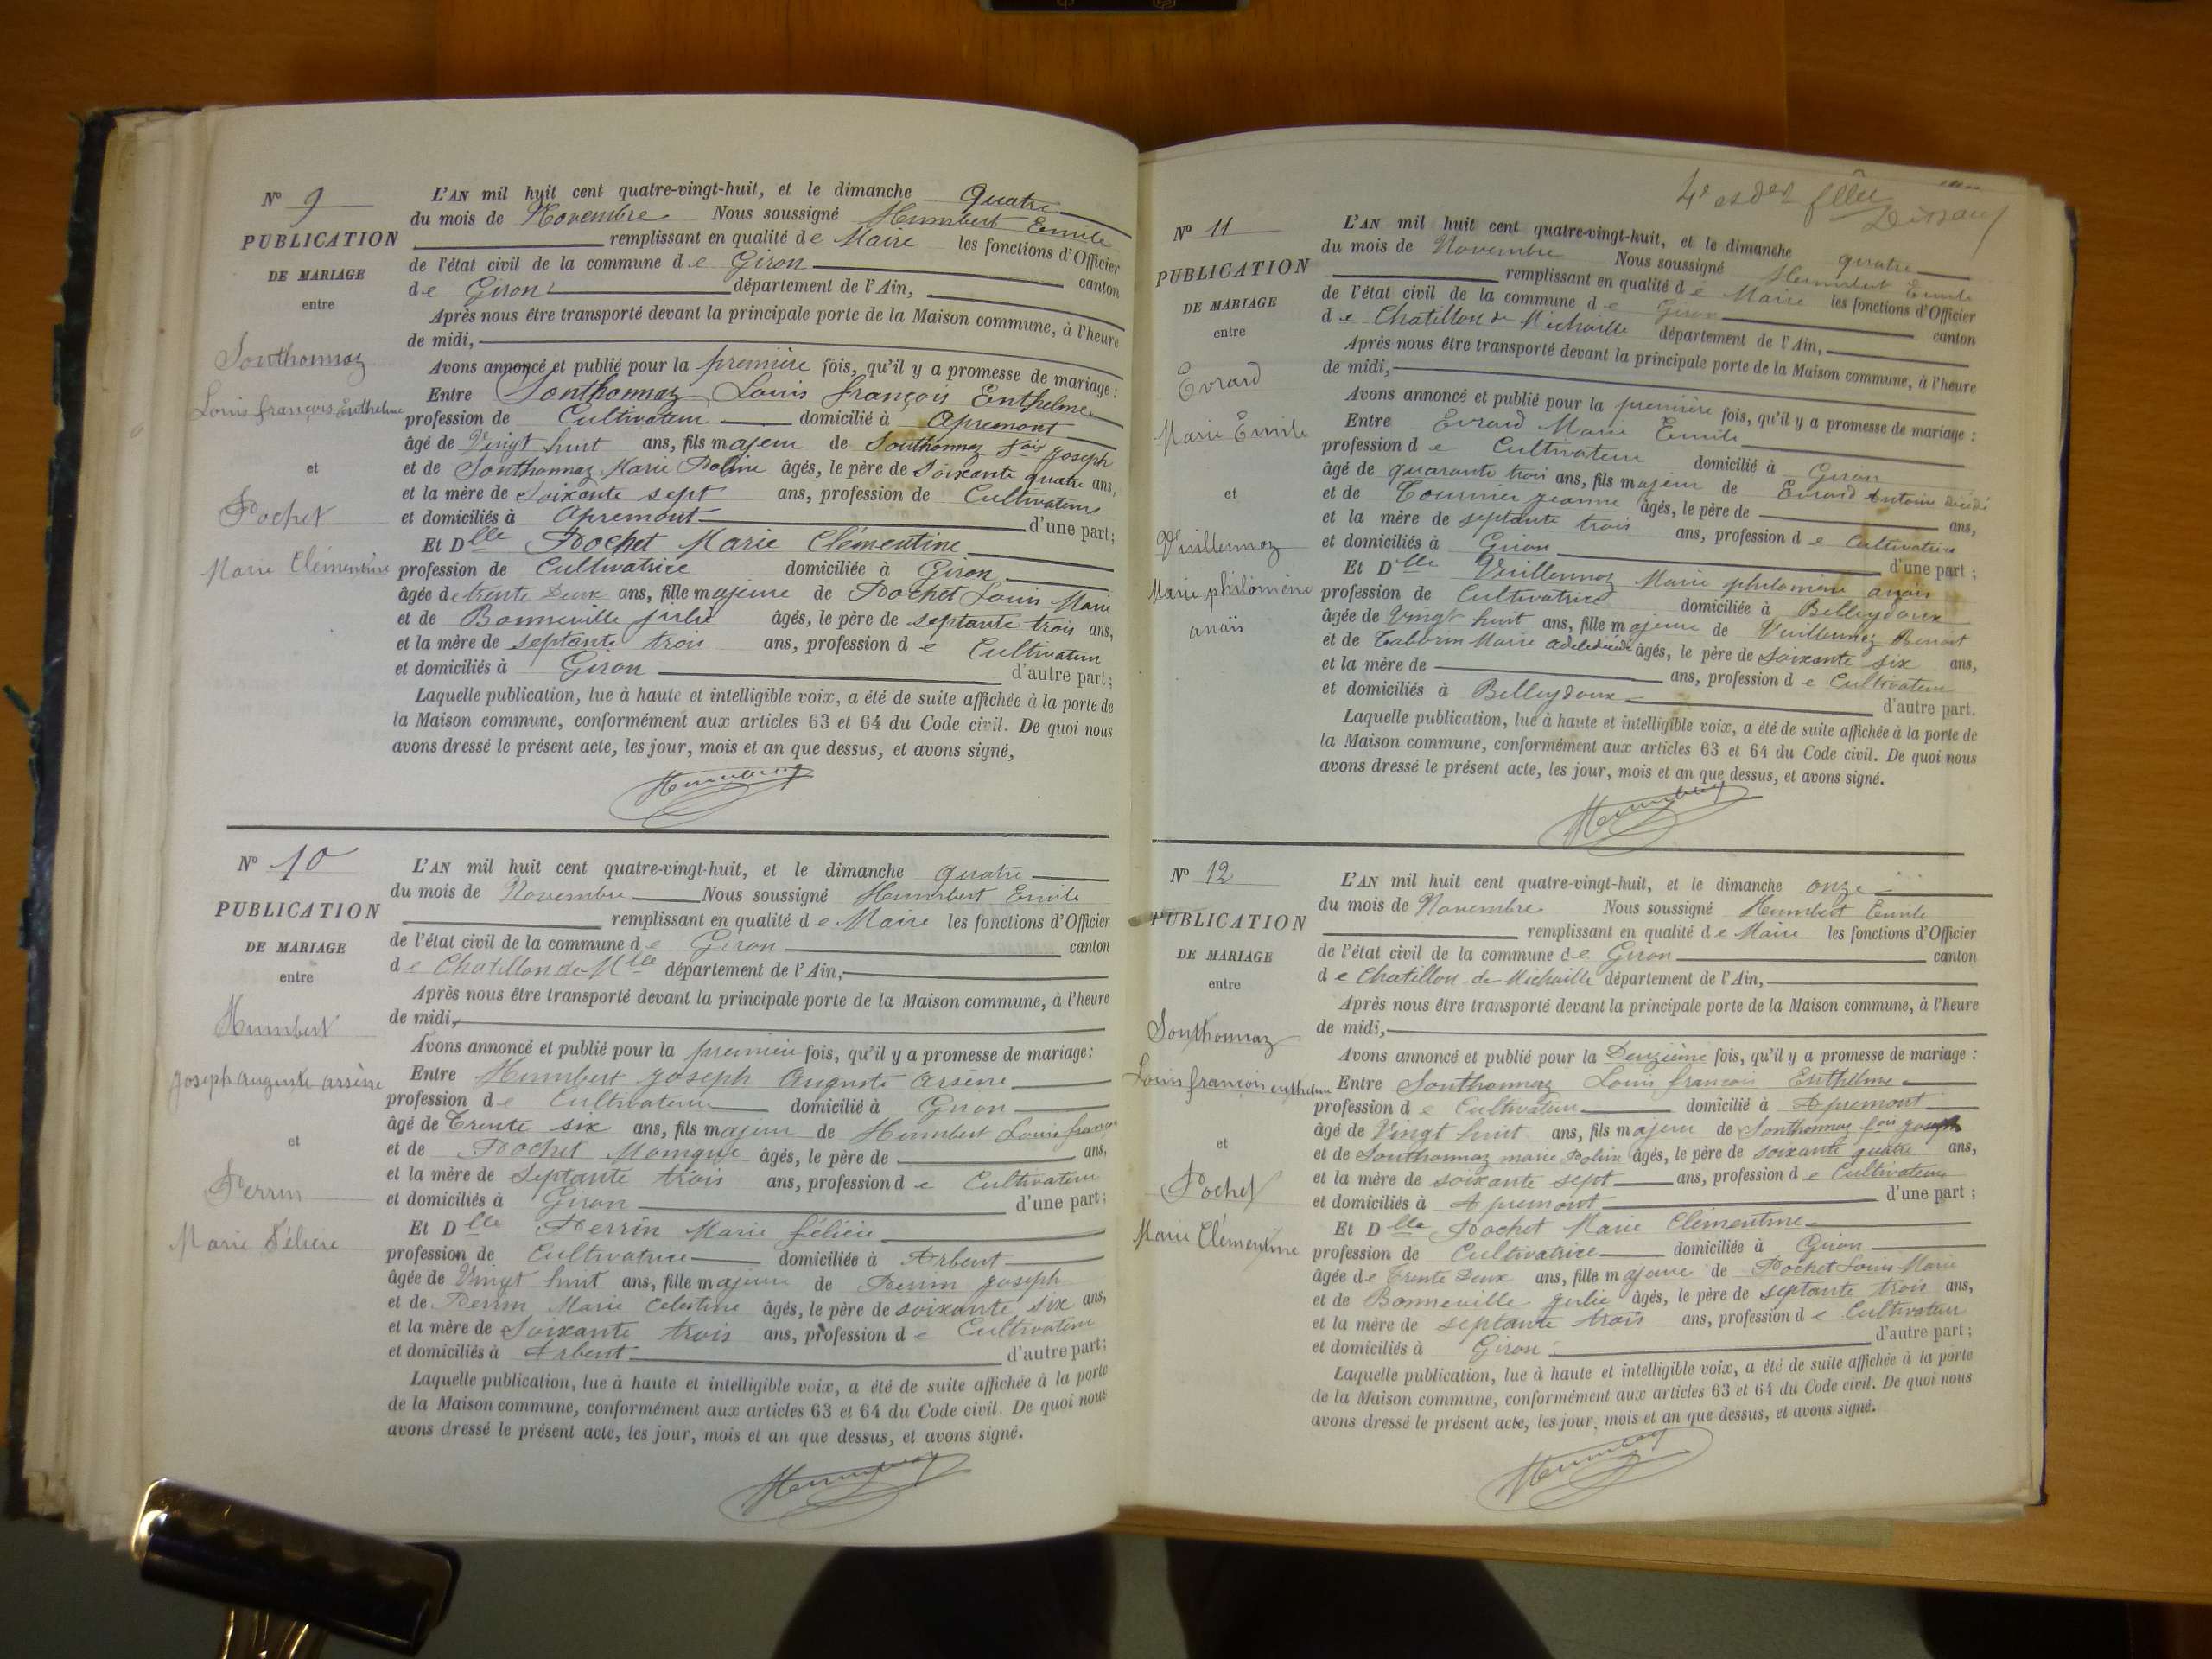 N° 9
PUBLICATION
DE MARIAGE
entre
Sonthonnaz
Louis françois Enthelme
et
Pochet
Marie Clémentine
L'AN mil huit cent quatre-vingt-huit, et le dimanche Quatre
du mois de Novembre Nous soussigné Humbert Emile
remplissant en qualité de Maire les fonctions d'Officier
de l'état civil de la commune de Giron canton
de Giron département de l'Ain,
Après nous être transporté devant la principale porte de la Maison commune, à l'heure
de midi,
Avons annoncé et publié pour la première fois, qu'il y a promesse de mariage :
Entre Sonthonnaz Louis françois Enthelme
profession de Cultivateur domicilié à Apremont
âgé de Vingt huit ans, fils majeur de Sonthonnaz fois joseph
et de Sonthonnaz Marie Poline âgés, le père de Soixante quatre ans,
et la mère de Soixante sept ans, profession de Cultivateurs
et domiciliés à Apremont d'une part;
Et Dlle Pochet Marie Clémentine
profession de Cultivatrice domiciliée à Giron
âgée de trente Deux ans, fille majeure de Pochet Louis Marie
et de Bonneville julie âgés, le père de septante trois ans,
et la mère de septante trois ans, profession de Cultivateur
et domiciliés à Giron d'autre part;
Laquelle publication, lue à haute et intelligible voix, a été de suite affichée à la porte de
la Maison commune, conformément aux articles 63 et 64 du Code civil. De quoi nous
avons dressé le présent acte, les jour, mois et an que dessus, et avons signé,
Humbert
N° 10
PUBLICATION
DE MARIAGE
entre
Humbert
joseph auguste arsène
et
Perrin
Marie Félicie
L'AN mil huit cent quatre-vingt-huit, et le dimanche quatre
du mois de Novembre Nous soussigné Humbert Emile
remplissant en qualité de Maire les fonctions d'Officier
de l'état civil de la commune de Giron canton
de Chatillon de Mlle département de l'Ain,
Après nous être transporté devant la principale porte de la Maison commune, à l'heure
de midi,
Avons annoncé et publié pour la première fois, qu'il y a promesse de mariage:
Entre Humbert joseph Auguste arsène
profession de Cultivateur domicilié à Giron
âgé de Trente six ans, fils majeur de Humbert Louis françois
et de Pochet Monique âgés, le père de ans,
et la mère de Septante trois ans, profession de Cultivateur
et domiciliés à Giron d'une part;
Et Dlle Perrin Marie félicie
profession de Cultivatrice domiciliée à Arbent
âgée de Vingt huit ans, fille majeure de Perrin joseph
et de Perrin Marie Celestine âgés, le père de soixante six ans,
et la mère de Soixante trois ans, profession de Cultivateur
et domiciliés à Arbent d'autre part;
Laquelle publication, lue à haute et intelligible voix, a été de suite affichée à la porte
de la Maison commune, conformément aux articles 63 et 64 du Code civil. De quoi nous
avons dressé le présent acte, les jour, mois et an que dessus, et avons signé.
Humbert
4e et der
N° 11
PUBLICATION
DE MARIAGE
entre
Evrard
Marie Emile
et
Vuillermoz
Marie philomène
anaïs
L'AN mil huit cent quatre-vingt-huit, et le dimanche quatre
du mois de Novembre Nous soussigné Humbert Emile
remplissant en qualité de Maire les fonctions d'Officier
de l'état civil de la commune de Giron canton
de Chatillon de Michaille département de l'Ain,
Après nous être transporté devant la principale porte de la Maison commune, à l'heure
de midi,
Avons annoncé et publié pour la première fois, qu'il y a promesse de mariage :
Entre Evrard Marie Emile
profession de Cultivateur domicilié à Giron
âgé de quarante trois ans, fils majeur de Evrard Antoine décédé
et de Tournier jeanne âgés, le père de ans,
et la mère de septante trois ans, profession de Cultivatrice
et domiciliés à Giron d'une part;
Et Dlle Vuillermoz Marie philomène anaïs
profession de Cultivatrice domiciliée à Belleydoux
âgée de Vingt huit ans, fille majeure de Vuillermoz Benoit
et de Marie adele décédée âgés, le père de Soixante six ans,
et la mère de ans, profession de Cultivateur
et domiciliés à Belleydoux d'autre part.
Laquelle publication, lue à haute et intelligible voix, a été de suite affichée à la porte de
la Maison commune, conformément aux articles 63 et 64 du Code civil. De quoi nous
avons dressé le présent acte, les jour, mois et an que dessus, et avons signé.
Humbert
N° 12
PUBLICATION
DE MARIAGE
entre
Sonthonnaz
Louis françois enthelme
et
Pochet
Marie Clémentine
L'AN mil huit cent quatre-vingt-huit, et le dimanche onze
du mois de Novembre Nous soussigné Humbert Emile
remplissant en qualité de Maire les fonctions d'Officier
de l'état civil de la commune de Giron canton
de Chatillon de Michaille département de l'Ain,
Après nous être transporté devant la principale porte de la Maison commune, à l'heure
de midi,
Avons annoncé et publié pour la Deuzième fois, qu'il y a promesse de mariage :
Entre Sonthonnaz Louis francois Enthelme
profession de Cultivateur domicilié à Apremont
âgé de Vingt huit ans, fils majeur de Sonthonnaz fois joseph
et de Sonthonnaz marie Poline âgés, le père de soixante quatre ans,
et la mère de soixante sept ans, profession de Cultivateur
et domiciliés à Apremont d'une part ;
Et Dlle Pochet Marie Clémentine
profession de Cultivatrice domiciliée à Giron
âgée de Trente Deux ans, fille majeure de Pochet Louis Marie
et de Bonneville julie âgés, le père de septante trois ans,
et la mère de septante trois ans, profession de Cultivateur
et domiciliés à Giron d'autre part ;
Laquelle publication, lue à haute et intelligible voix, a été de suite affichée à la porte
de la Maison commune, conformément aux articles 63 et 64 du Code civil. De quoi nous
avons dressé le présent acte, les jour, mois et an que dessus, et avons signé.
Humbert